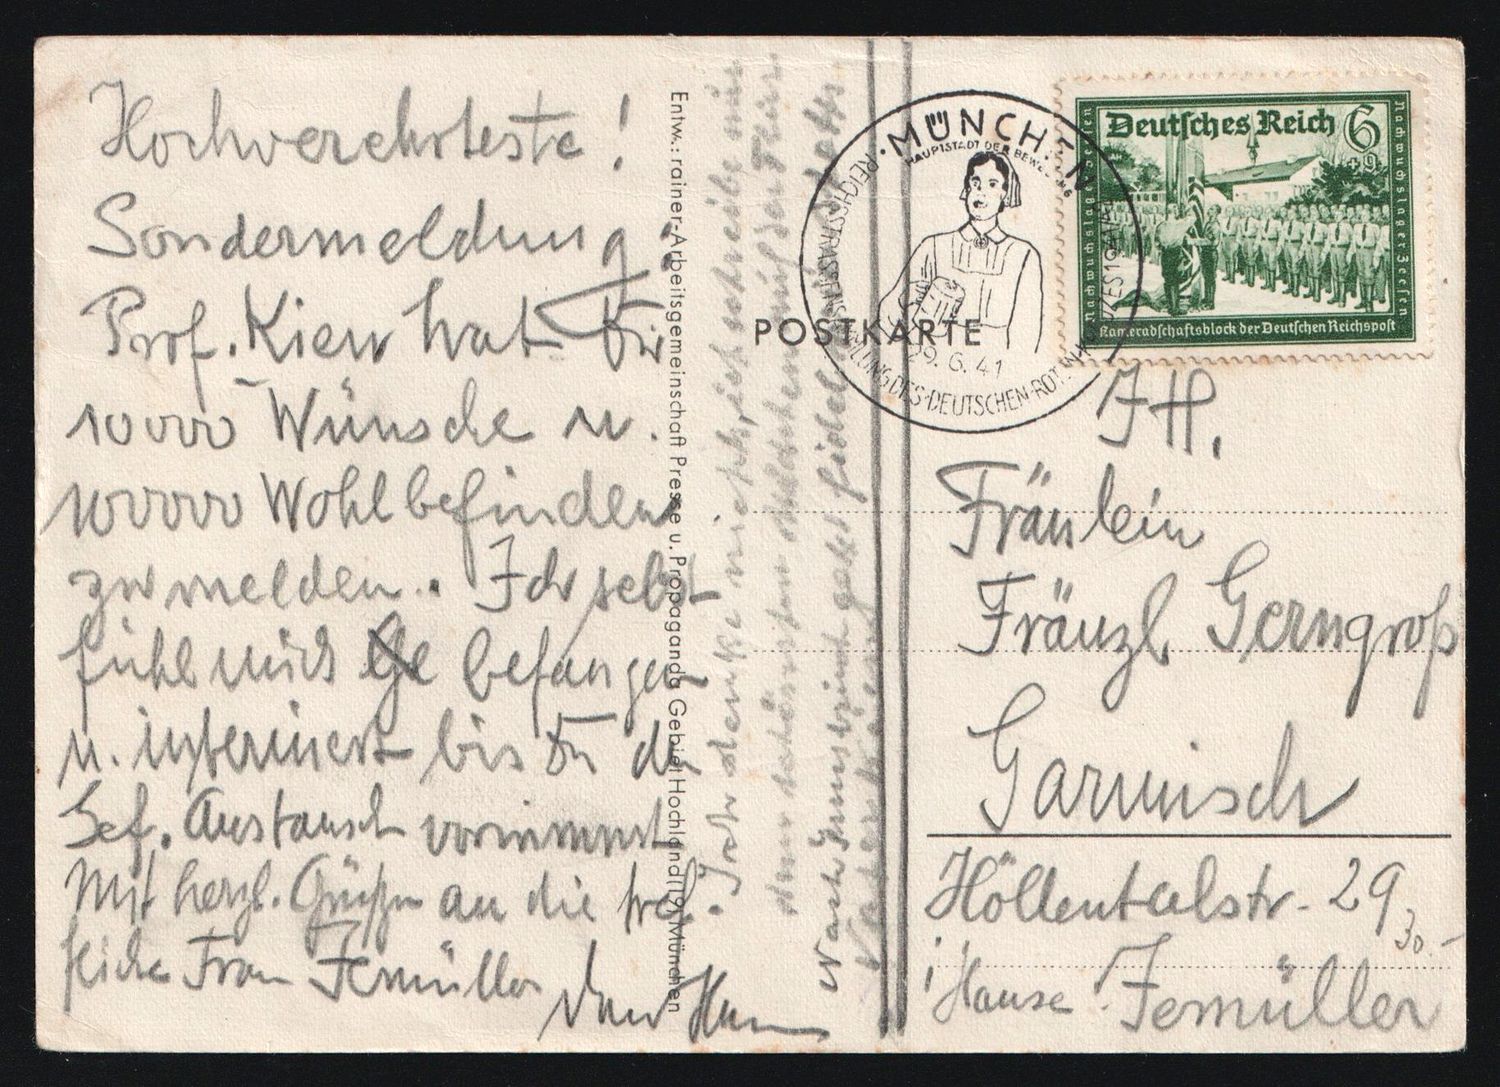 Hochverehrteste!
Sondermeldung:
Prof. Kien hat Dir
10000 Wünsche u.
100000 Wohlbefinden
zu melden. Ich selbst
fühl mich befangen
u. interniert bis Du den
Gef. Austausch vornimmst
Mit herzl. Grüßen an die fröh-
liche Frau Jemüller
Dein
Entw.: rainer-Arbeitsgemeinschaft Presse u. Propaganda Gebiet Hochland (19) München
Ich denke nicht, ich schreibe nur
POSTKARTE
MÜNCHEN
HAUPTSTADT DER BEWEGUNG
REICHSSTRASSENSAMMLUNG DES DEUTSCHEN ROTEN KREUZES 1941
29.6.41
Deutsches Reich 6
+9
Nachwuchslager Zeesen
Kameradschaftsblock der Deutschen Reichspost
Fräulein
Fränzl Gerngroß
Garmisch
Höllentalstr. 29
30.-
Hause Jemüller